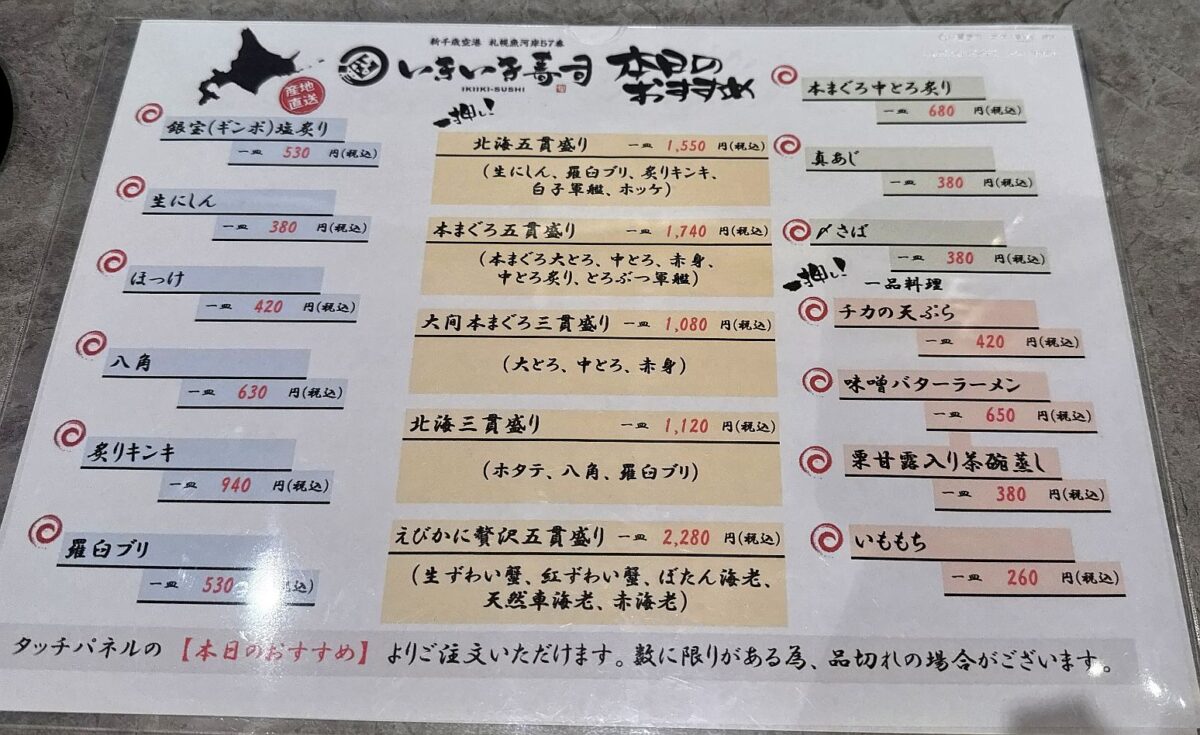 新千歳空港 札幌魚河岸57番
いきいき寿司
IKIIKI-SUSHI
本日の
おすすめ
産地
直送
銀宝(ギンポ)塩炙り
一皿 530 円(税込)
生にしん
一皿 380 円(税込)
ほっけ
一皿 420 円(税込)
八角
一皿 630 円(税込)
炙りキンキ
一皿 940 円(税込)
羅臼ブリ
一皿 530 円(税込)
一押し!
北海五貫盛り 一皿 1,550 円(税込)
(生にしん、羅臼ブリ、炙りキンキ、
白子軍艦、ホッケ)
本まぐろ五貫盛り 一皿 1,740 円(税込)
(本まぐろ大とろ、中とろ、赤身、
中とろ炙り、とろぶつ軍艦)
大間本まぐろ三貫盛り 一皿 1,080 円(税込)
(大とろ、中とろ、赤身)
北海三貫盛り 一皿 1,120 円(税込)
(ホタテ、八角、羅臼ブリ)
えびかに贅沢五貫盛り 一皿 2,280 円(税込)
(生ずわい蟹、紅ずわい蟹、ぼたん海老、
天然車海老、赤海老)
本まぐろ中とろ炙り
一皿 680 円(税込)
真あじ
一皿 380 円(税込)
〆さば
一皿 380 円(税込)
一押し! 一品料理
チカの天ぷら
一皿 420 円(税込)
味噌バターラーメン
一皿 650 円(税込)
栗甘露入り茶碗蒸し
一皿 380 円(税込)
いももち
一皿 260 円(税込)
タッチパネルの【本日のおすすめ】よりご注文いただけます。数に限りがある為、品切れの場合がございます。